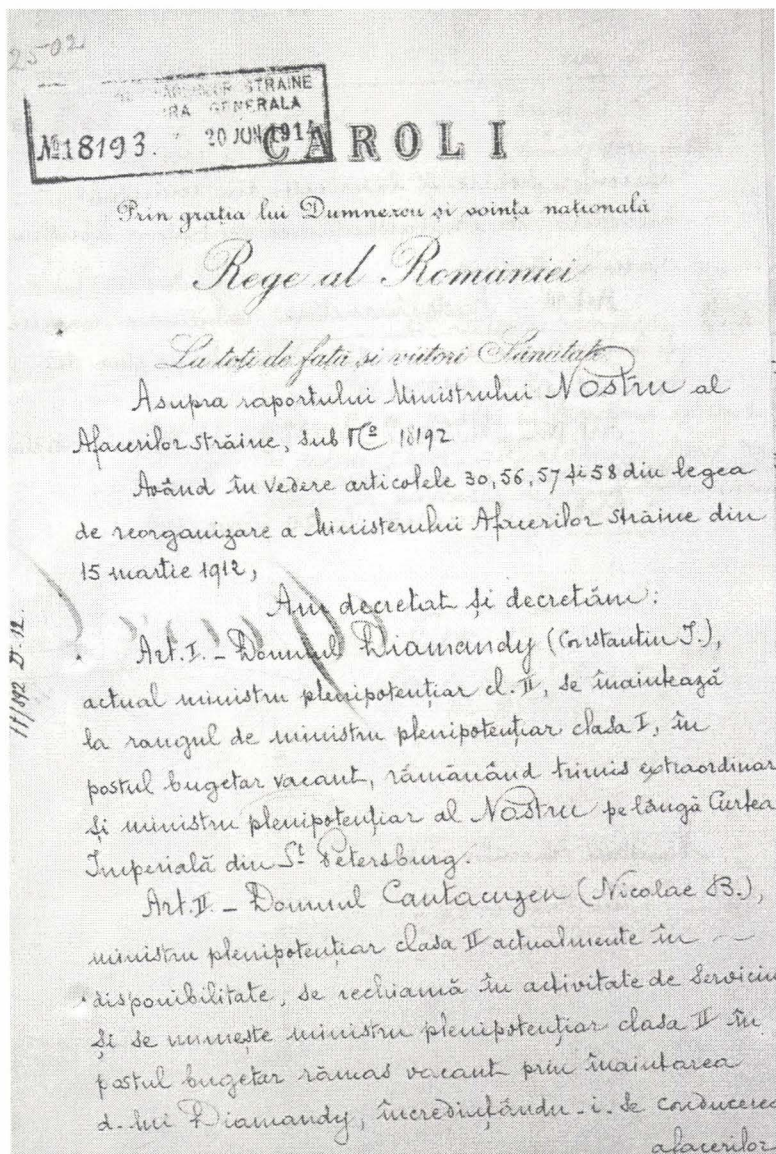 2502
AFACERILOR STRAINE
GENERALA
№18193. 20 JUN. 1914
CAROL I
Prin grația lui Dumnezeu și voința națională
Rege al României
La toți de față și viitori Sănătate
Asupra raportului Ministrului Nostru al
Afacerilor străine, sub No 18192
Având în vedere articolele 30, 56, 57 și 58 din legea
de reorganizare a Ministerului Afacerilor străine din
15 martie 1912,
Am decretat și decretăm:
Art. I. - Domnul Diamandy (Constantin I.),
actual ministru plenipotențiar cl. II, se înaintează
la rangul de ministru plenipotențiar clasa I, în
postul bugetar vacant, rămânând trimis extraordinar
și ministru plenipotențiar al Nostru pe lângă Curtea
Imperială din St Petersburg.
Art. II. - Domnul Cantacuzen (Nicolae B.),
ministru plenipotențiar clasa II actualmente în
disponibilitate, se rechiamă în activitate de serviciu
și se numește ministru plenipotențiar clasa II în
postul bugetar rămas vacant prin înaintarea
d-lui Diamandy, încredințându-i-se conducerea
afacerilor